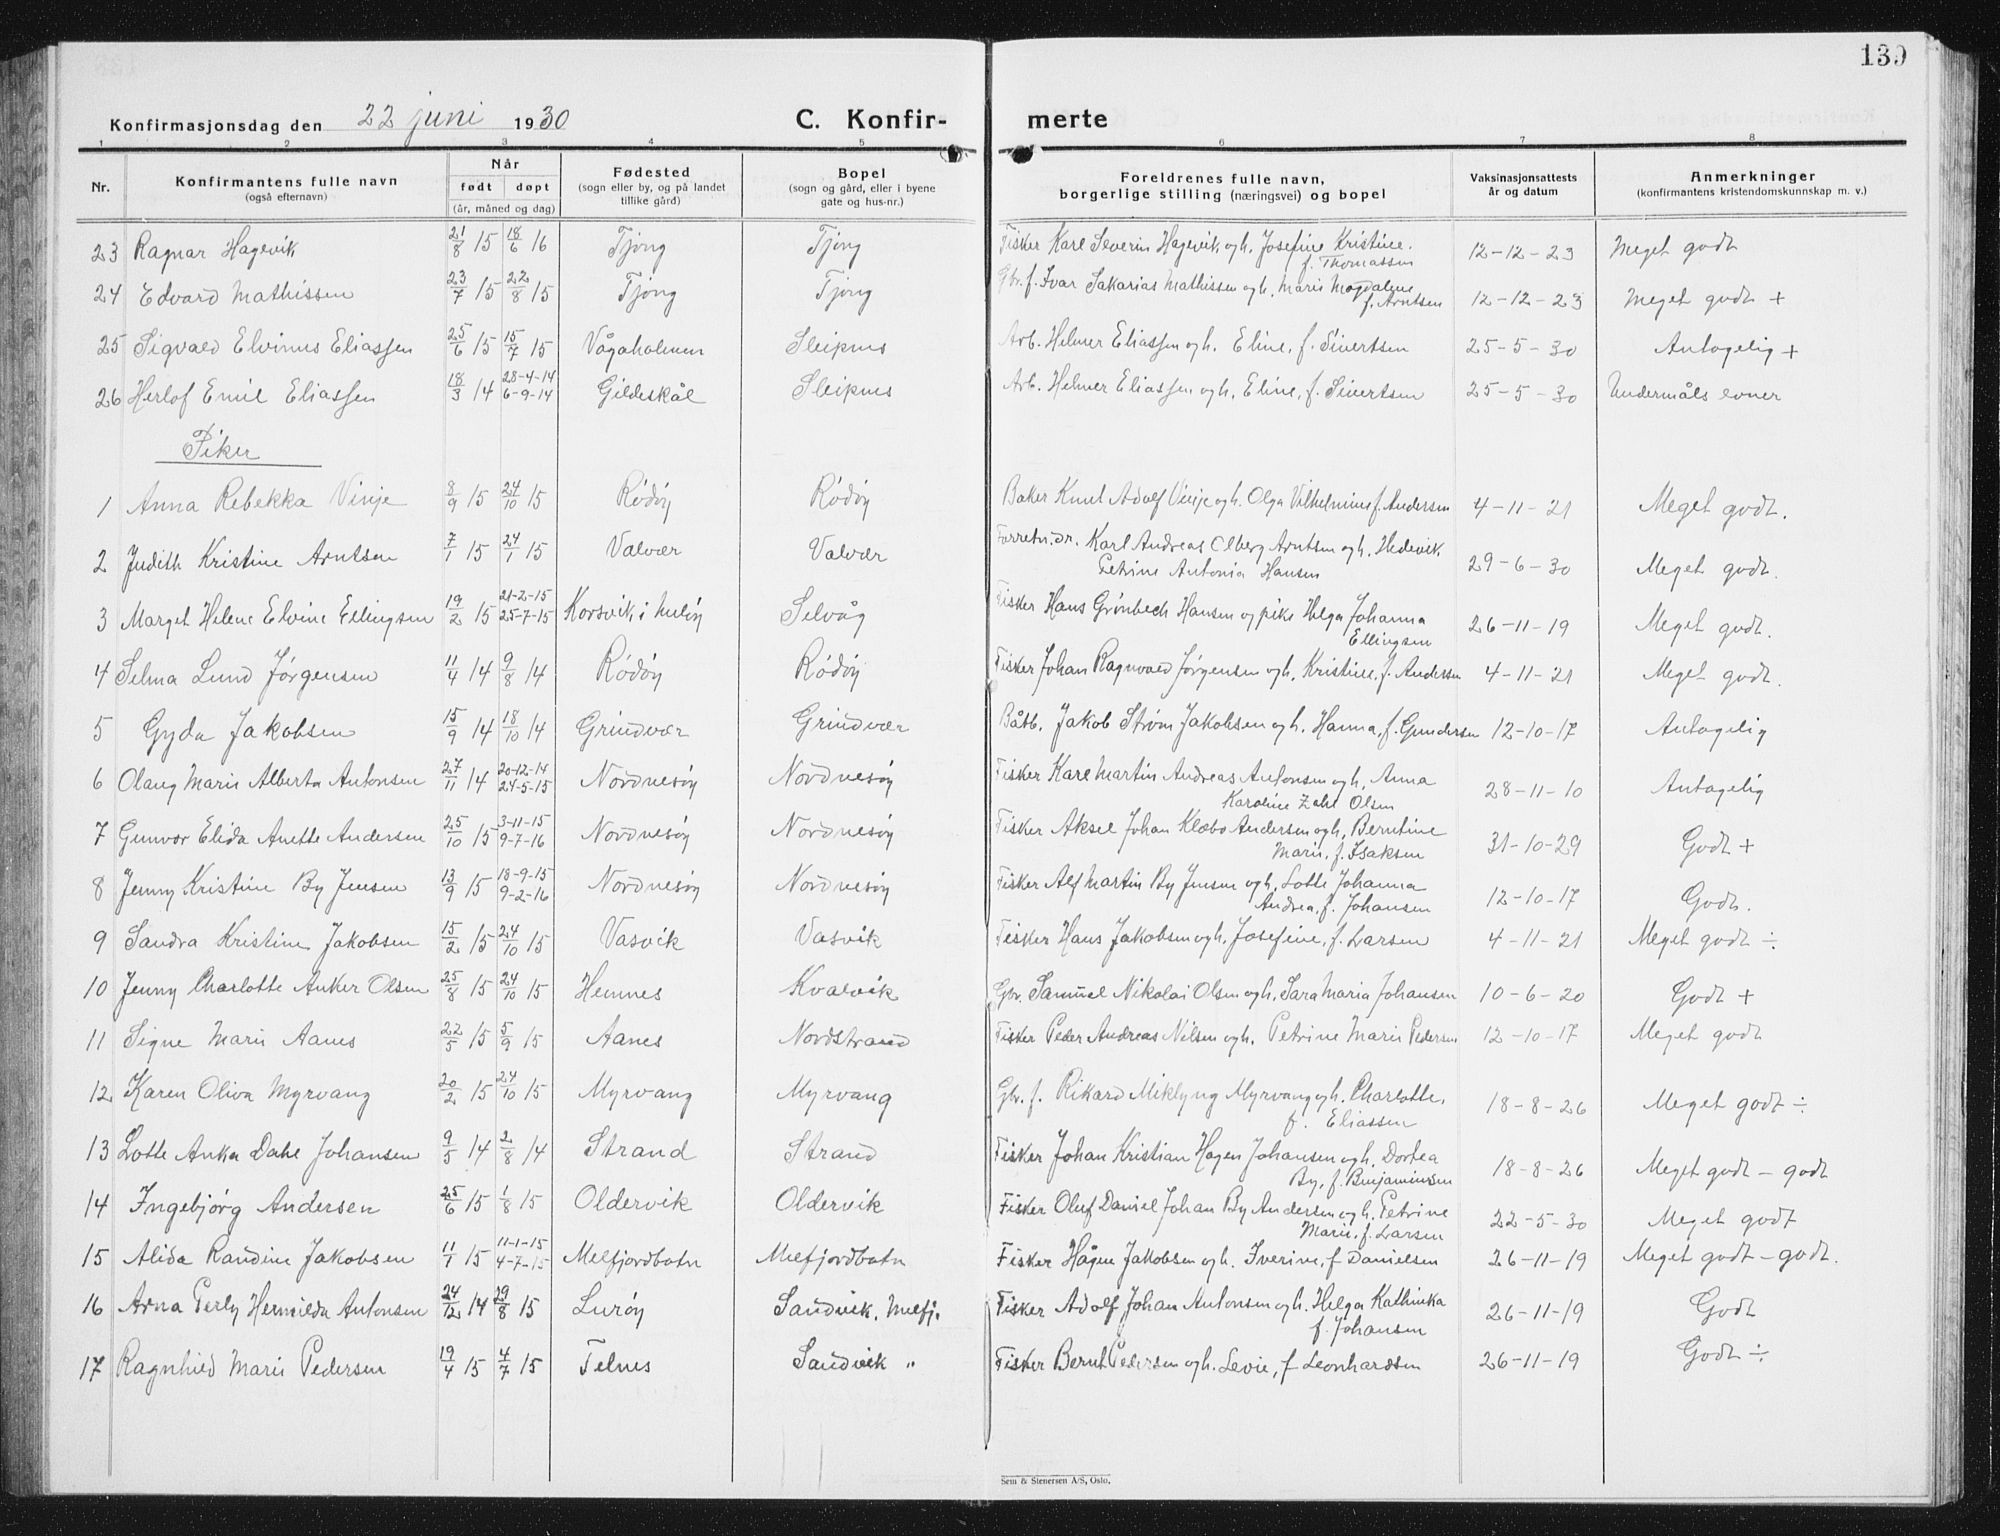 139
Konfirmasjonsdag den 22 juni 1930 C. Konfir- merte
1 2 3 4 5 6 7 8
Nr. Konfirmantens fulle navn (også efternavn) Når født døpt (år, måned og dag) Fødested (sogn eller by, og på landet tillike gård) Bopel (sogn og gård, eller i byene gate og hus-nr.) Foreldrenes fulle navn, borgerlige stilling (næringsvei) og bopel Vaksinasjonsattests år og datum Anmerkninger (konfirmantens kristendomskunnskap m. v.)
23 Ragnar Hagevik 21/8 15 18/6 16 Tjong Tjong Fisker Karl Severin Hagevik og h. Josefine Kristine. f. Thomassen 12-12-23 Meget godt
24 Edvard Mathissen 23/7 15 22/8 15 Tjong Tjong Gbr. f. Ivar Sakarias Mathissen og h. Marie Magdalene f. Arntsen 12-12-23 Meget godt +
25 Sigvald Elvinus Eliassen 25/6 15 15/7 15 Vågaholmen Sleipnes Arb. Helmer Eliassen og h. Eline, f. Sivertsen 25-5-30 Antagelig +
26 Herlof Emil Eliassen 18/3 14 28-4-14 6-9-14 Gildeskål Sleipnes Arb. Helmer Eliassen og h. Eline, f. Sivertsen 25-5-30 Undermåls evner
Piker
1 Anna Rebekka Vinje 8/9 15 24/10 15 Rødøy Rødøy Baker Knut Adolf Vinje og h. Olga Vilhelmine f. Andersen 4-11-21 Meget godt.
2 Judith Kristine Arntsen 7/1 15 24/1 15 Valvær Valvær Forretn.dr. Karl Andreas Olberg Arntsen og h. Hedevik Petrine Antonia Hansen 29-6-30 Meget godt.
3 Marget Helene Elvine Ellingsen 19/2 15 21-2-15 25-7-15 Korsvik i Selvåg Fisker Hans Grønbech Hansen og pike Helga Johanna Ellingsen 26-11-19 Meget godt.
4 Selma Lund Jørgensen 11/4 14 9/8 14 Rødøy Rødøy Fisker Johan Ragnvald Jørgensen og h. Kristine, f. Andersen 4-11-21 Meget godt.
5 Gyda Jakobsen 15/9 14 18/10 14 Grindvær Grindvær Båtb. Jakob Strøm Jakobsen og h. Hanna, f. Gundersen 12-10-17 Antagelig
6 Olaug Marie Alberta Antonsen 27/11 14 20-12-14 24-5-15 Nordnesøy Nordnesøy Fisker Karl Martin Andreas Antonsen og h. Anna Karoline Zahl Olsen 28-11-10 Antagelig
7 Gunvor Elida Anette Andersen 25/10 15 3-11-15 9-7-16 Nordnesøy Nordnesøy Fisker Aksel Johan Klæbo Andersen og h. Berntine Marie, f. Isaksen 31-10-29 Godt +
8 Jenny Kristine By Jensen 13/9 15 18-9-15 9-2-16 Nordnesøy Nordnesøy Fisker Alf Martin By Jensen og h. Lotte Johanna Andrea, f. Johansen 12-10-17 Godt.
9 Sandra Kristine Jakobsen 15/2 15 24/10 15 Vasvik Vasvik Fisker Hans Jakobsen og h. Josefine, f. Larsen 4-11-21 Meget godt ÷
10 Jenny Charlotte Anker Olsen 25/8 15 24/10 15 Hemnes Kvalvik Gbr. Samuel Nikolai Olsen og h. Sara Maria Johansen 10-6-20 Godt +
11 Signe Marie Aanes 22/5 15 5/9 15 Aanes Nordstrand Fisker Peder Andreas Nilsen og h. Petrine Marie Pedersen 12-10-17 Meget godt
12 Karen Oliva Myrvang 20/2 15 24/10 15 Myrvang Myrvang Gbr. f. Rikard Miklyng Myrvang og h. Charlotte, f. Eliassen 18-8-26 Meget godt ÷
13 Lotte Anka Dahl Johansen 9/5 14 2/8 14 Strand Strand Fisker Johan Kristian Hagen Johansen og h. Dortea By, f. Benjaminsen 18-8-26 Meget godt - godt
14 Ingebjørg Andersen 25/6 15 1/8 15 Oldervik Oldervik Fisker Oluf Daniel Johan By Andersen og h. Petrine Marie, f. Larsen 22-5-30 Meget godt
15 Alida Randine Jakobsen 11/1 15 11-1-15 4-7-15 Melfjordbotn Melfjordbotn Fisker Hågen Jakobsen og h. Iverine, f Danielsen 26-11-19 Meget godt - godt.
16 Arna Perly Hermilda Antonsen 24/12 14 29/8 15 Lurøy Sandvik, Melfj. Fisker Adolf Johan Antonsen og h. Helga Kathinka f. Johansen 26-11-19 Godt
17 Ragnhild Marie Pedersen 19/4 15 4/7 15 Telnes Sandvik " Fisker Bernt Pedersen og h. Levie, f Leonhardsen 26-11-19 Godt ÷
Sem & Stenersen A/S, Oslo.